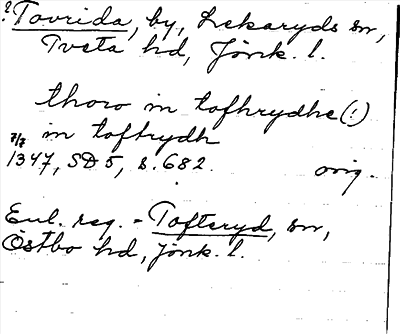 ? Tovrida, by, Lekaryds sn,
Tveta hd, Jönk. l.
thoro in tofhrydhe (!)
7/7 in toftrydh
1347, SD 5, s. 682. orig.
Enl. reg. = Tofteryd, sn,
Östbo hd, Jönk. l.